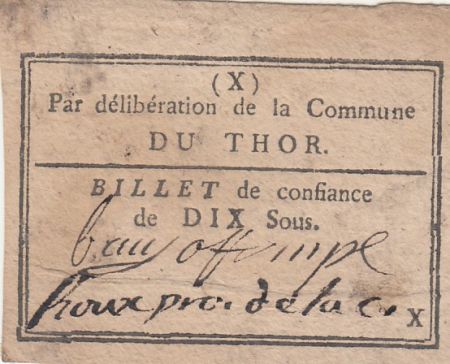 (X)
Par délibération de la Commune
DU THOR.
BILLET de confiance
de DIX Sous.
Roux pro. de la c.
X